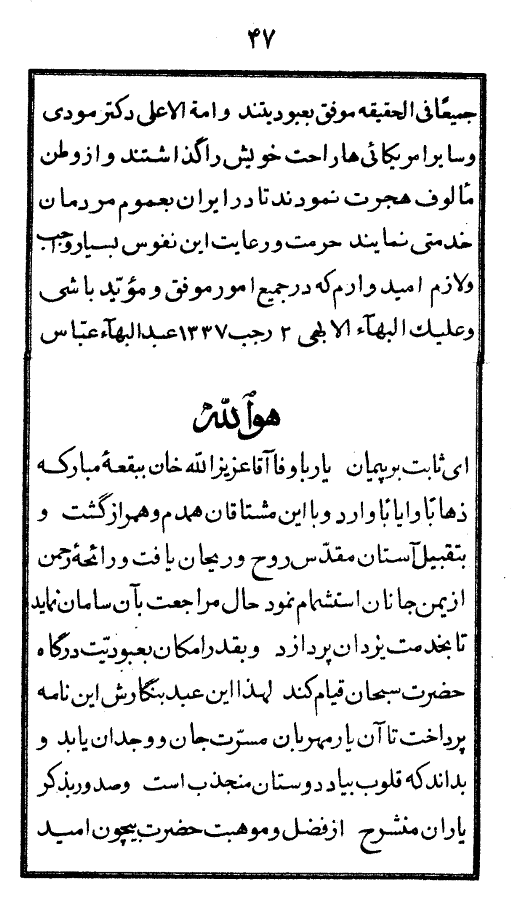 ۴۷
جمیعًا فی الحقیقه موفق بعبودیتند و امة الاعلی دکتر مودی
و سایر امریکائی ها راحت خویش را گذاشتند و از وطن
مألوف هجرت نمودند تا در ایران بعموم مردمان
خدمتی نمایند حرمت و رعایت این نفوس بسیار واجب
ولازم امیدوارم که در جمیع امور موفق و مؤیّد باشی
وعلیک البهآء الابهی ۲ رجب ۱۳۳۷ عبدالبهآء عبّاس
هوالله
ای ثابت بر پیمان یار باوفا آقا عزیزالله خان ببقعهٔ مبارکه
ذهابًا و ایابًا وارد و با این مشتاقان همدم و همراز گشت و
بتقبیل آستان مقدّس روح و ریحان یافت و رائحهٔ رحمن
از یمن جانان استشمام نمود حال مراجعت بآن سامان نماید
تا بخدمت یزدان پردازد و بقدر امکان بعبودیّت درگاه
حضرت سبحان قیام کند لهذا این عبد بنگارش این نامه
پرداخت تا آن یار مهربان مسرّت جان و وجدان یابد و
بداند که قلوب بیاد دوستان منجذب است و صدور بذکر
یاران منشرح از فضل و موهبت حضرت بیچون امید